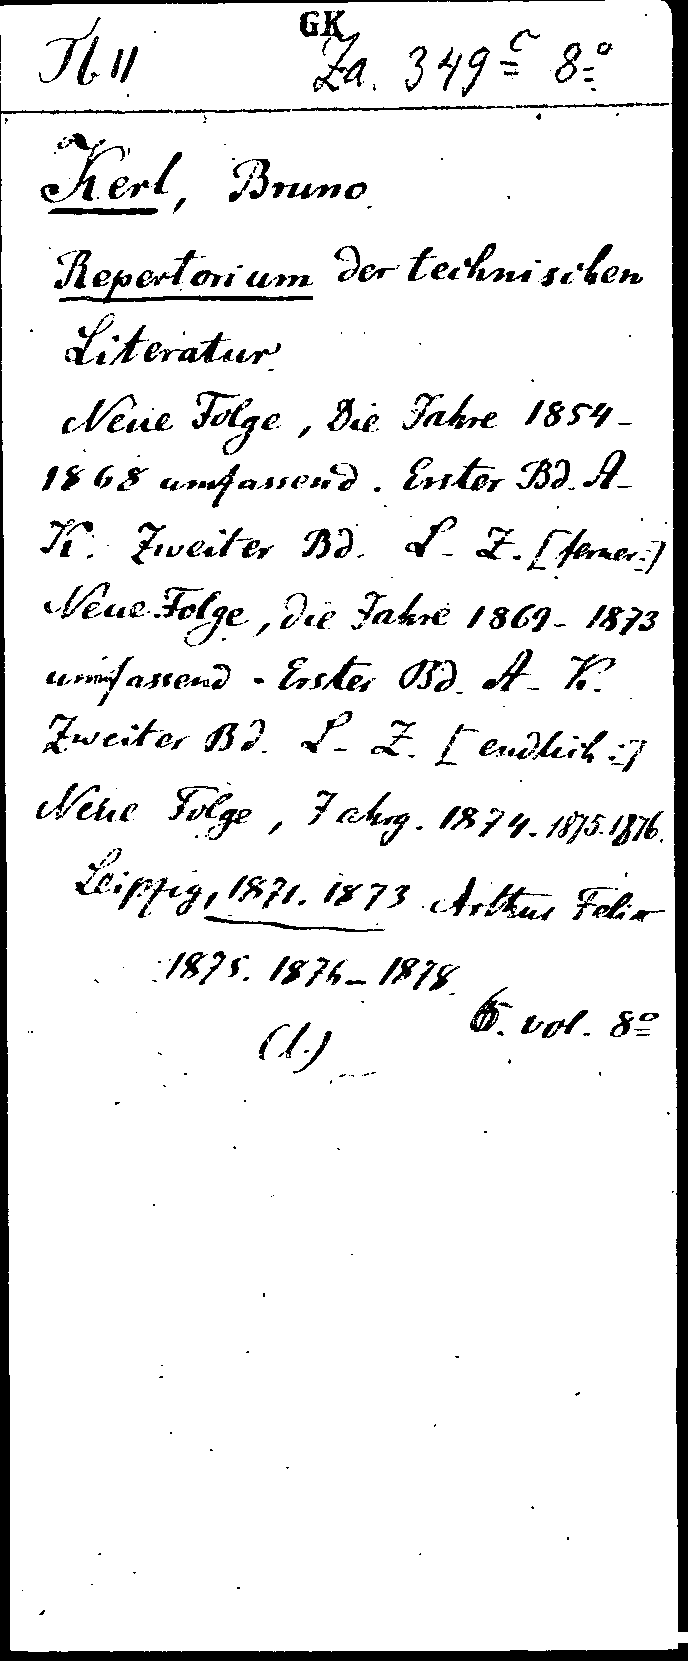 GK
Tb 11 Za. 349 c 8°
Kerl, Bruno
Repertorium der technischen
Literatur
Neue Folge, Die Jahre 1854-
1868 umfassend. Erster Bd. A-
K. Zweiter Bd. L-Z. [ferner:]
Neue Folge, die Jahre 1869-1873
umfassend - Erster Bd. A-K.
Zweiter Bd. L-Z. [endlich:]
Neue Folge, Jahrg. 1874. 1875. 1876.
Leipzig, 1871. 1873 Arthur Felix
1875. 1876-1878
6. vol. 8°
(l.)